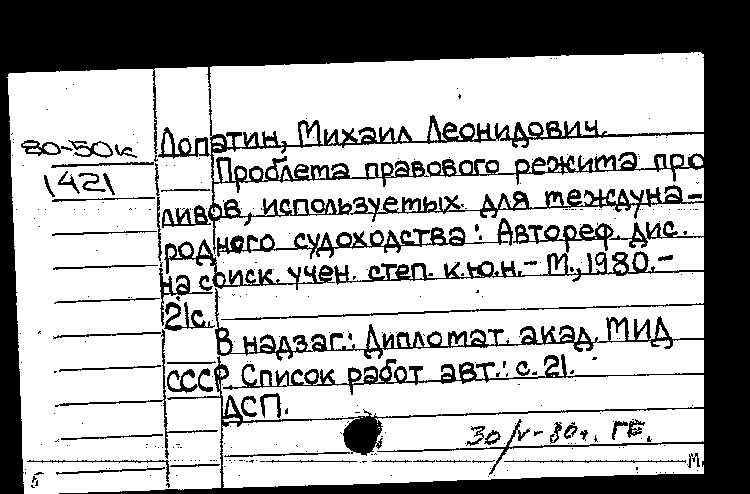 80-50к
1421
Лопатин, Михаил Леонидович.
Проблема правового режима про
ливов, используемых для междуна-
родного судоходства: Автореф. дис.
на соиск. учен. степ. к.ю.н.- М.,1980.-
21с.
В надзаг.: Дипломат. акад. МИД
СССР. Список работ авт.: с. 21.
ДСП.
30/V-80г. ГЕ.
М.
Б